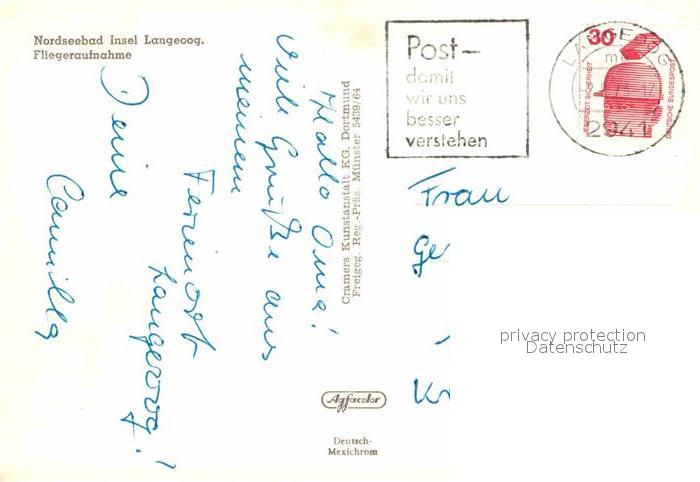 Nordseebad Insel Langeoog.
Fliegeraufnahme
Hallo Oma!
Viele Grüße aus
meinem
Ferienort
Langeoog!
Deine
Camilla
Cramers Kunstanstalt KG, Dortmund
Freigeg. Reg.-Präs. Münster 5439/64
Agfacolor
Deutsch-
Mexichrom
Post—
damit
wir uns
besser
verstehen
30
JEDERZEIT SICHERHEIT
DEUTSCHE BUNDESPOST
2941
Frau
Ge
Kr
privacy protection
Datenschutz